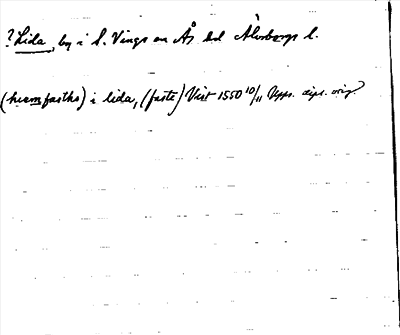 ? Lida, by i S. Vings sn Ås hd Älvsborgs l.
(hwemfasthe) i lida, (faste) Vist 1550 10/11 Upps. dipl. orig.